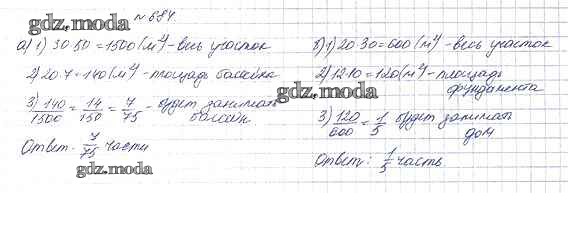 gdz.moda № 684
а) 1) 30·50 = 1500 (м²) - весь участок
2) 20·7 = 140 (м²) - площадь бассейна
3) 140/1500 = 14/150 = 7/75 - будет занимать
бассейн
Ответ: 7/75 части
gdz.moda
б) 1) 20·30 = 600 (м²) - весь участок
2) 12·10 = 120 (м²) - площадь
фундамента
gdz.moda
3) 120/600 = 1/5 будет занимать
дом
Ответ: 1/5 часть.